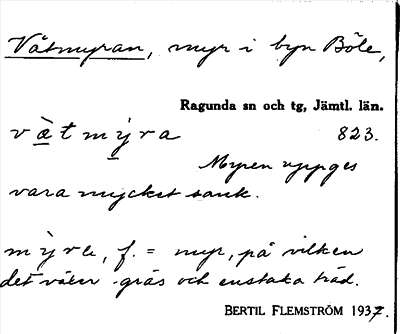 Våtmyran, myr i byn Böle,
Ragunda sn och tg, Jämtl. län.
vàtmỳra 823.
Myren uppges
vara mycket sank.
mỳra, f. = myr, på vilken
det växer gräs och enstaka träd.
BERTIL FLEMSTRÖM 1937.